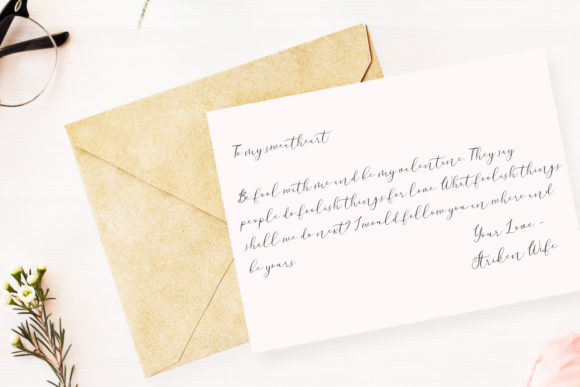 To my sweetheart
Be fool with me and be my valentine. They say
people do foolish things for love. What foolish things
shall we do next? I would follow you in where and
be yours
Your Love -
Striken Wife